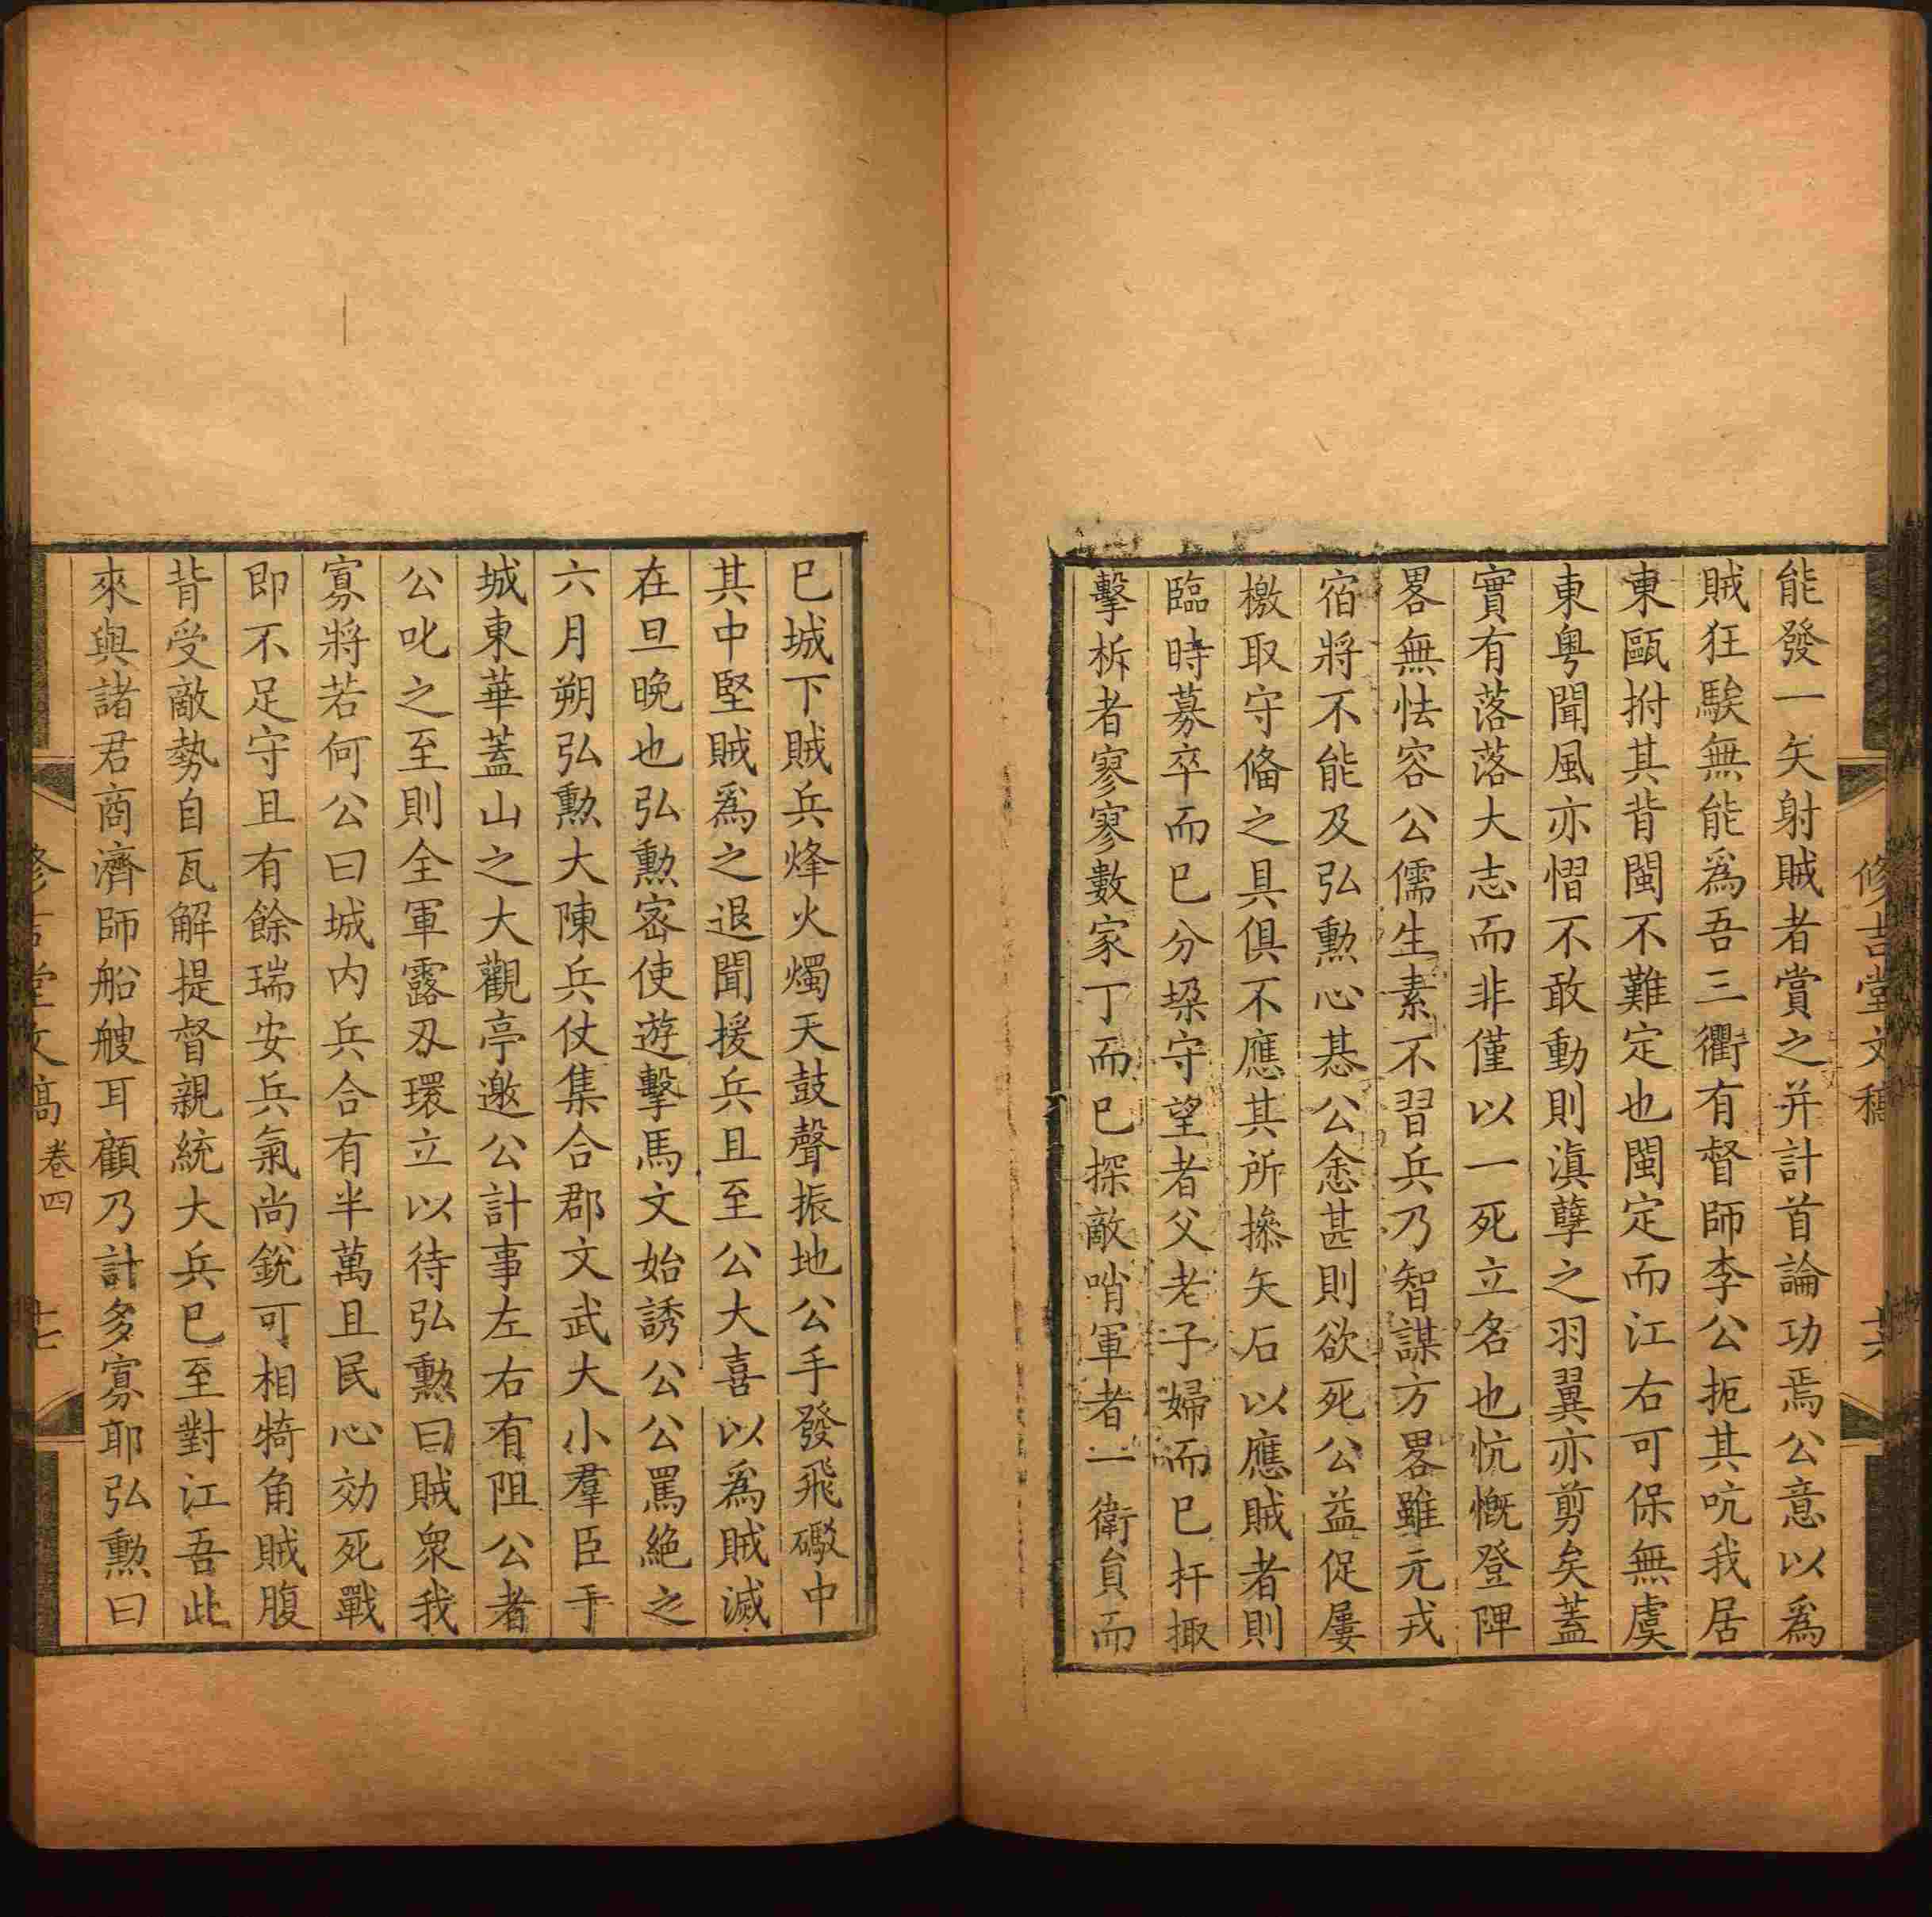 修吉堂文稿
十六
能發一矢射賊者賞之并計首論功焉公意以爲
賊狂騃無能爲吾三衢有督師李公扼其吭我居
東甌拊其背閩不難定也閩定而江右可保無虞
東粤聞風亦慴不敢動則滇孽之羽翼亦剪矣蓋
實有落落大志而非僅以一死立名也忼慨登陴
畧無怯容公儒生素不習兵乃智謀方畧雖元戎
宿將不能及弘勲心惎公恚甚則欲死公益促屢
檄取守偹之具俱不應其所摻矢石以應賊者則
臨時募卒而已分垜守望者父老子婦而已扞掫
擊柝者寥寥數家丁而已探敵哨軍者一衛貟而
已城下賊兵烽火燭天鼓聲振地公手發飛礟中
其中堅賊爲之退聞援兵且至公大喜以爲賊滅
在旦晚也弘勲宻使遊擊馬文始誘公公罵絶之
六月朔弘勲大陳兵仗集合郡文武大小羣臣于
城東華蓋山之大觀亭邀公計事左右有阻公者
公叱之至則全軍露刄環立以待弘勲曰賊衆我
寡將若何公曰城内兵合有半萬且民心効死戰
即不足守且有餘瑞安兵氣尚銳可相犄角賊腹
背受敵勢自瓦解提督親統大兵已至對江吾此
來與諸君商濟師船艘耳顧乃計多寡耶弘勲曰
修吉堂文稿
卷四
十七